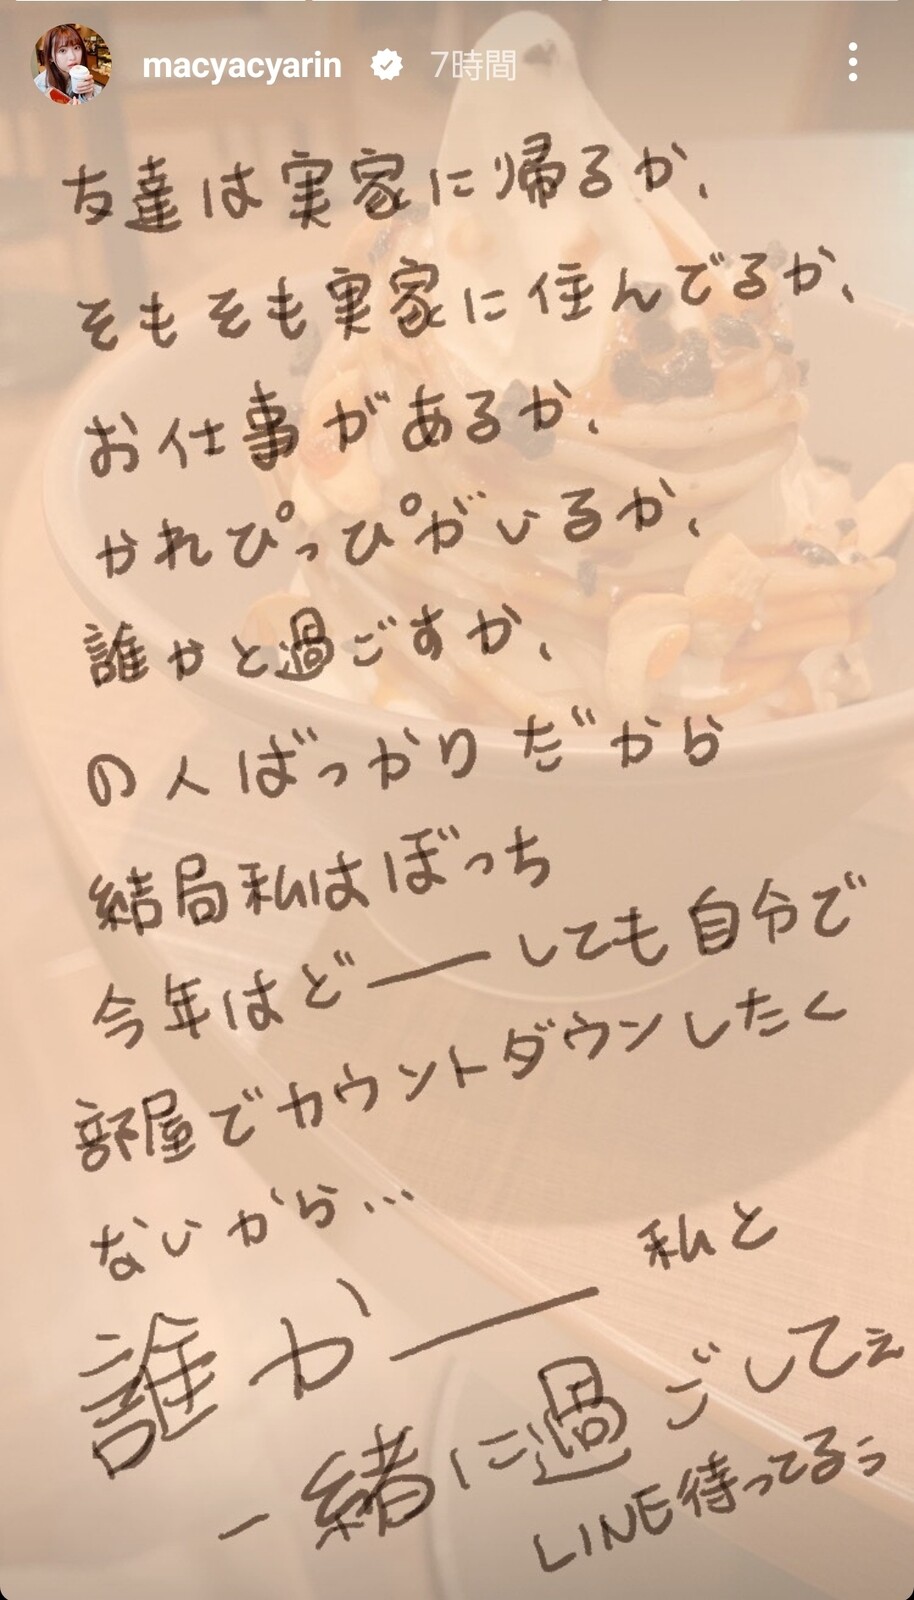 macyacyarin 7時間
友達は実家に帰るか、
そもそも実家に住んでるか、
お仕事があるか、
かれぴっぴがいるか、
誰かと過ごすか、
の人ばっかりだから
結局私はぼっち
今年はどーーしても自分で
部屋でカウントダウンしたく
ないから...
誰かーー 私と
一緒に過ごしてぇ
LINE待ってるぅ